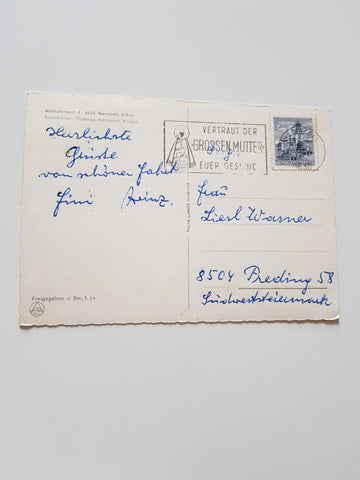 Wallfahrtsort A - 8630 Mariazell, 870 m
VERTRAUT DER
GROSSEN MUTTER
EUER GESCHIC
Herzlichste
Grüße
von schöner Fahrt
Fini Heinz.
Frau
Liesl Wasner
8504 Preding 58
Südweststeiermark
Freigegeben v. Bm. f. Lv